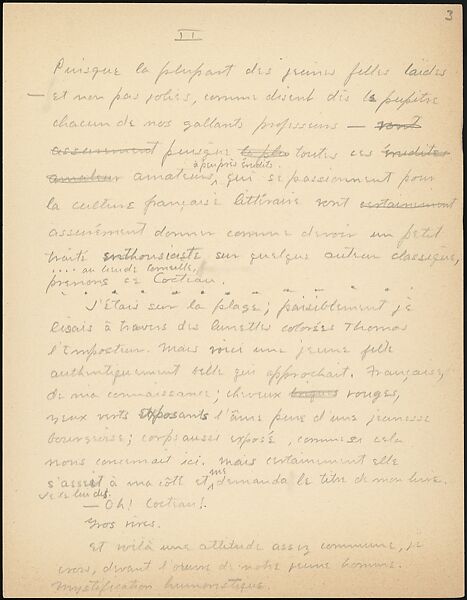 3
II
Puisque la plupart des jeunes filles laides
— et non pas jolies, comme disent dès le pupitre
chacun de nos gallants professeurs — vont
assurement puisque toutes ces érudites
à peu près inédits
amateur amateurs, qui se passionnent pour
la culture française littéraire vont certainement
assurément donner comme devoir un petit
traité enthousiaste sur quelque auteur classique,
.... au lieu de Corneille,
prenons ce Cocteau.
J'étais sur la plage; paisiblement je
lisais à travers des lunettes colorées Thomas
l'Imposteur. Mais voici une jeune fille
authentiquement belle qui approchait. Française,
de ma connaissance; cheveux rouges,
yeux verts exposants l'âme pure d'une jeunesse
bourgeoise; corps aussi exposé, comme si cela
nous concernait ici. Mais certainement elle
s'assit à mon côté et, me demanda le titre de mon livre.
Je le lui dis.
— Oh! Cocteau!
Gros rires.
Et voilà une attitude assez commune, je
crois, devant l'œuvre de notre jeune homme.
Mystification humoristique.